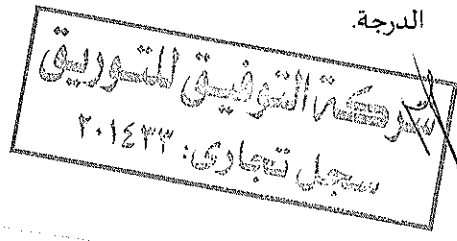 الدرجة.
شركة التوفيق للتوريق
سجل تجارى: ٢٠١٤٣٣